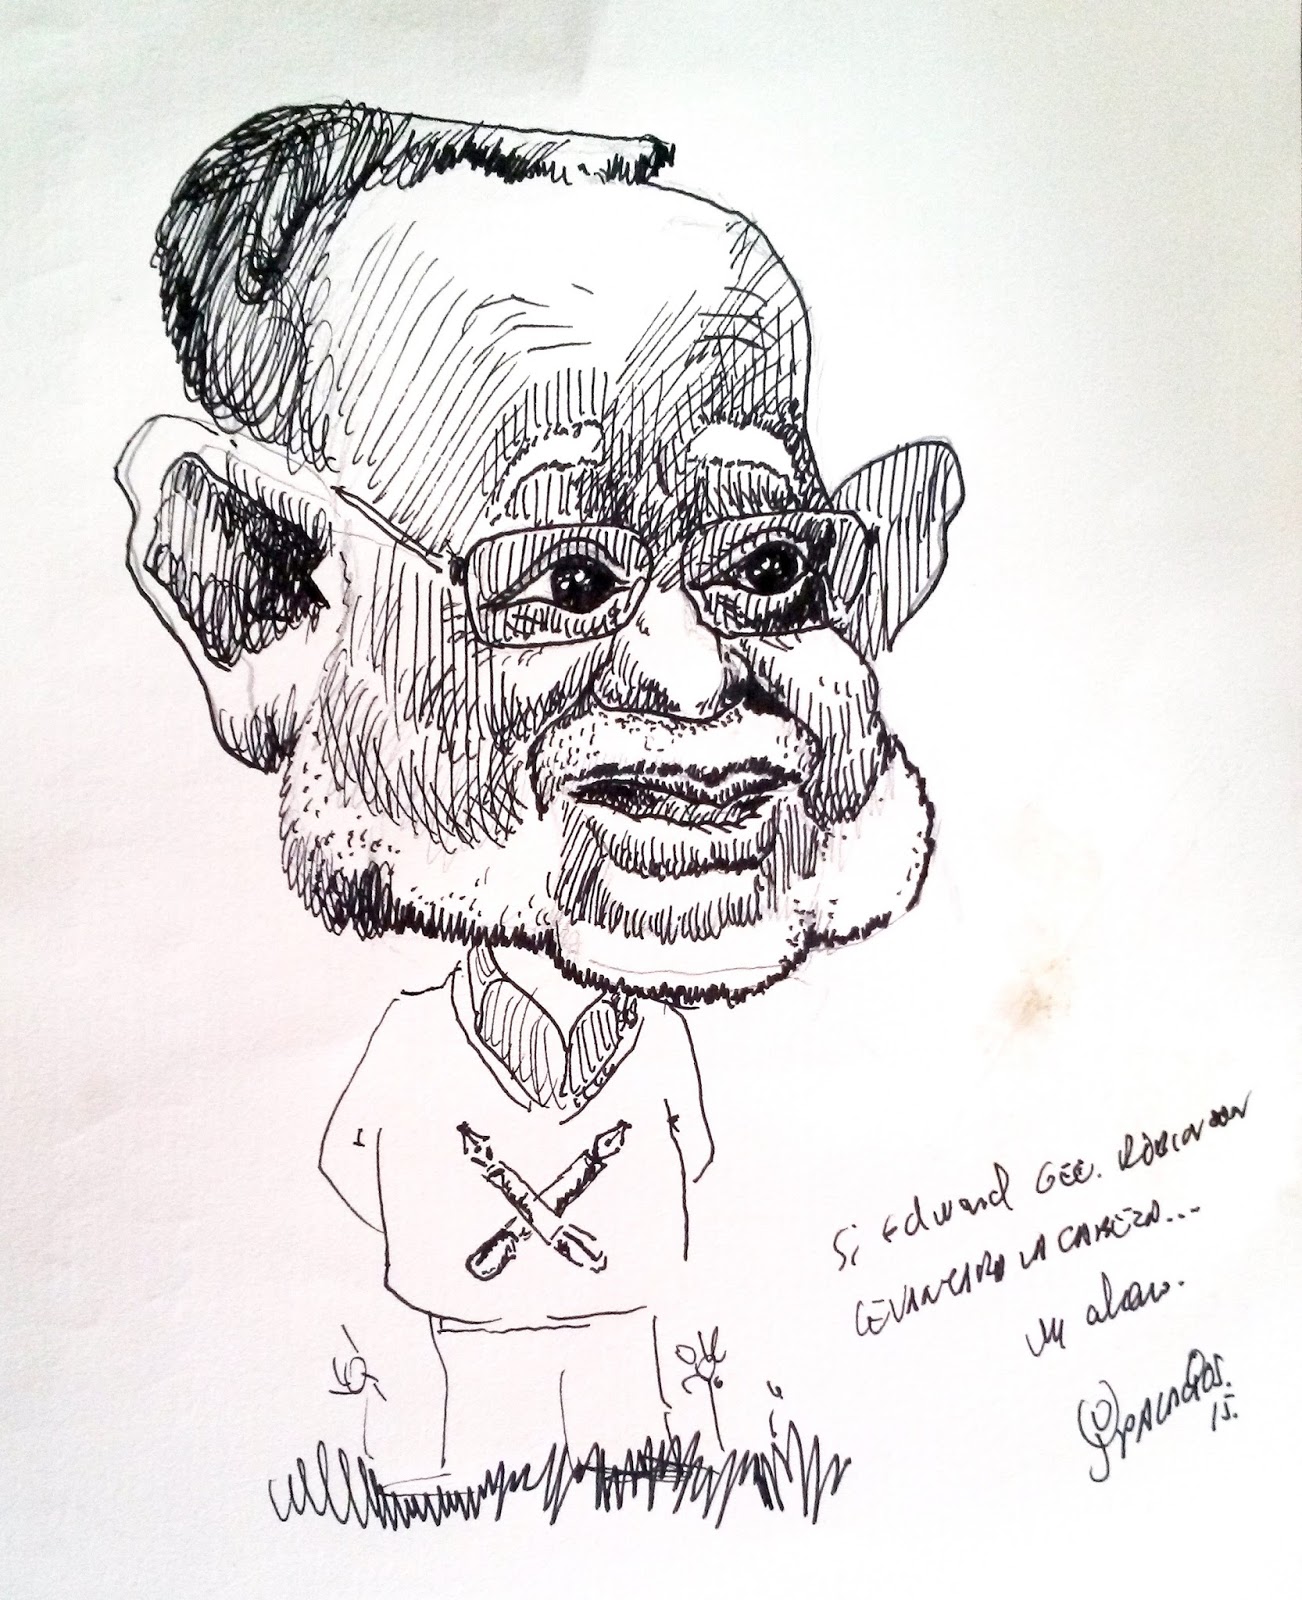 Si Edward Gee. Robinson
LEVANTARA LA CABEZA...
Un abrazo.
PALACIOS.
15.